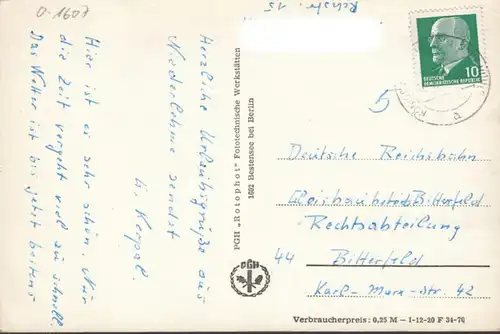 O-1607
Herzliche Urlaubsgrüße aus
Niederlehme sendet
Hier ist es sehr schön. Nur
die Zeit vergeht viel zu schnell.
Das Wetter ist bis jetzt heiteres
PGH „Rotophot" Fototechnische Werkstätten
1602 Bestensee bei Berlin
PGH
15
10
DEUTSCHE
DEMOKRATISCHE REPUBLIK
5
Deutsche Reichsbahn
Bitterfeld
Rechtsabteilung
44 Bitterfeld
Karl-Marx-Str. 42
Verbraucherpreis: 0,25 M – I-12-20 F 34-70